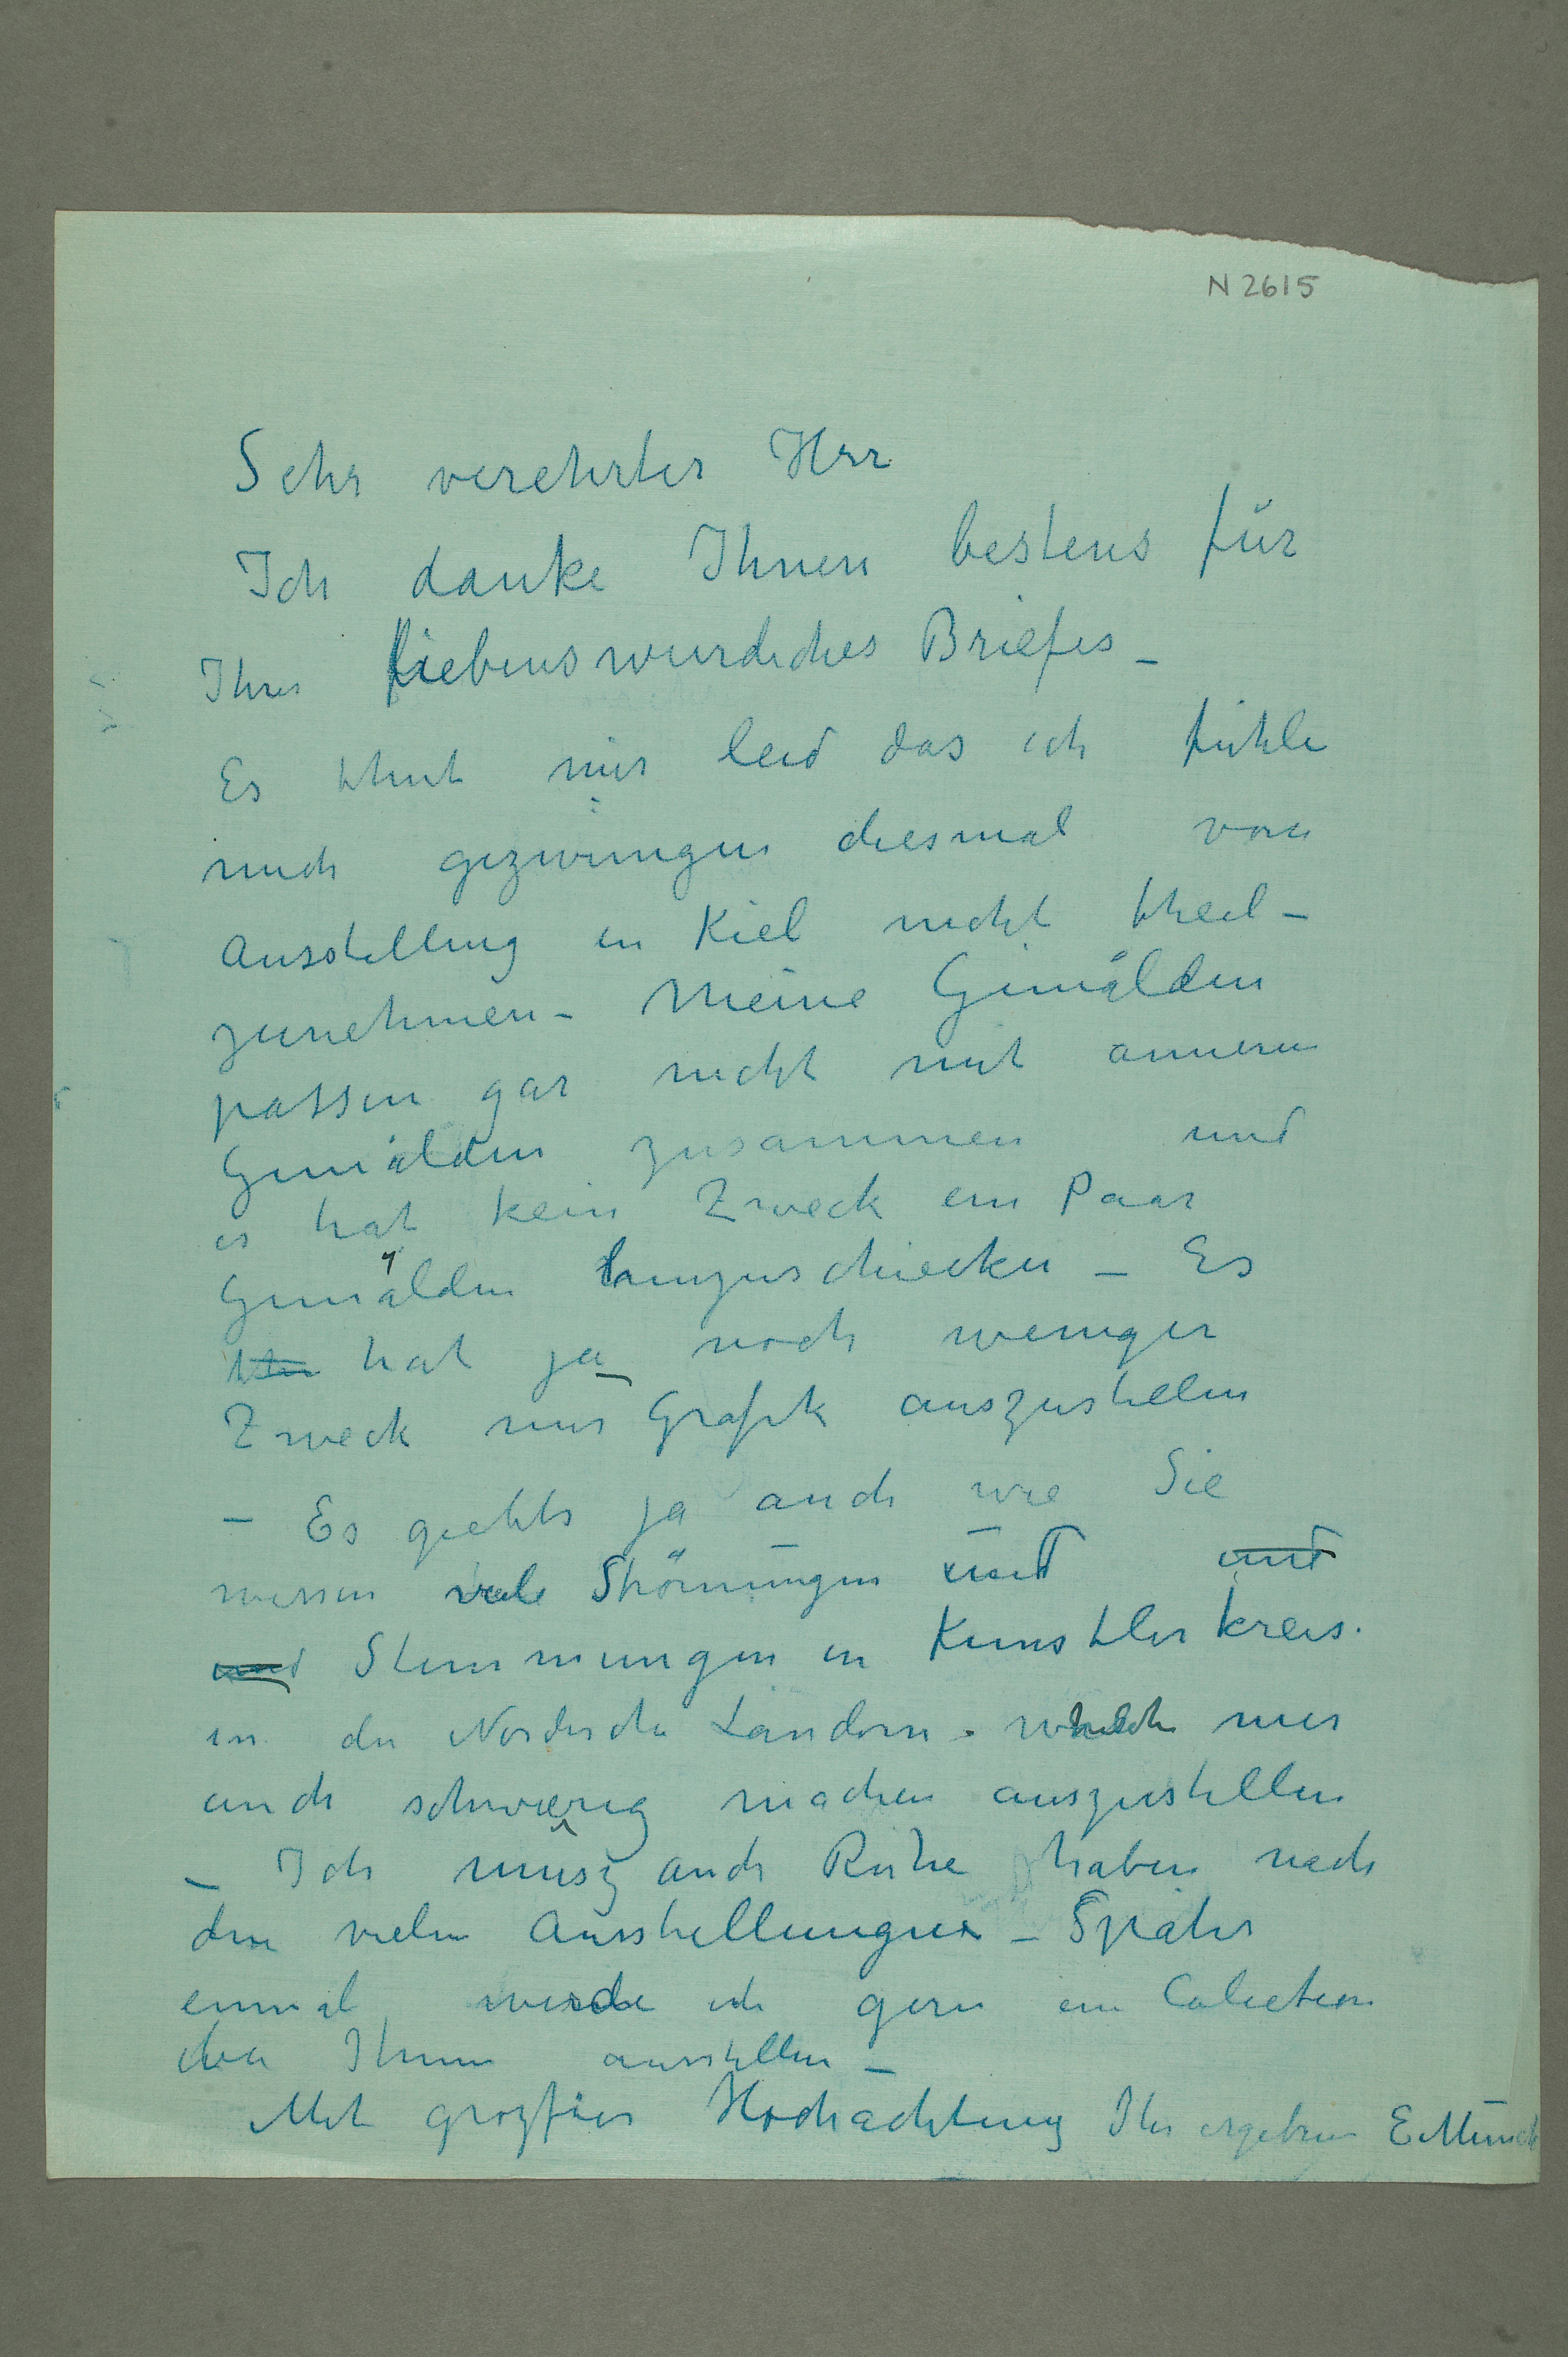 N 2615
Sehr verehrter Herr
Ich danke Ihnen bestens für
Ihres liebenswurdiches Briefes –
Es thut mir leid das ich fühle
mich gezwungen diesmal von
Ausstellung in Kiel nicht theil–
zunehmen – Meine Gemälden
passen gar nicht mit anneren
Gemälden zusammen und
es hat kein Zweck ein Paar
Gemälden hinzuschicken – Es
hat ja noch weniger
Zweck nur Grafik auszustellen
– Es giebts ja auch wie Sie
wissen viele Strömungen und und
und Stimmungen in Kunstlerkreis.
in den Nordische Ländern. welche mir
auch schwierig machen auszustellen
– Ich musz auch Ruhe haben nach
den vielen Ausstellungen – Später
einmal werde ich gern ein Colection
bei Ihnen ausstellen –
Mit grozfser Hochachtung Ihr ergebner E Munch